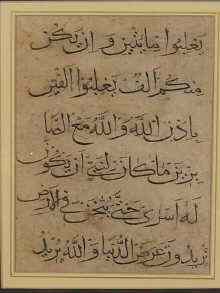 يغلبوا مائتين وان يكن
منكم الف يغلبوا الفين
باذن الله والله مع الصا
برين ما كان لنبي ان يكون
له اسرى حتى يثخن في الارض
تريدون عرض الدنيا والله يريد